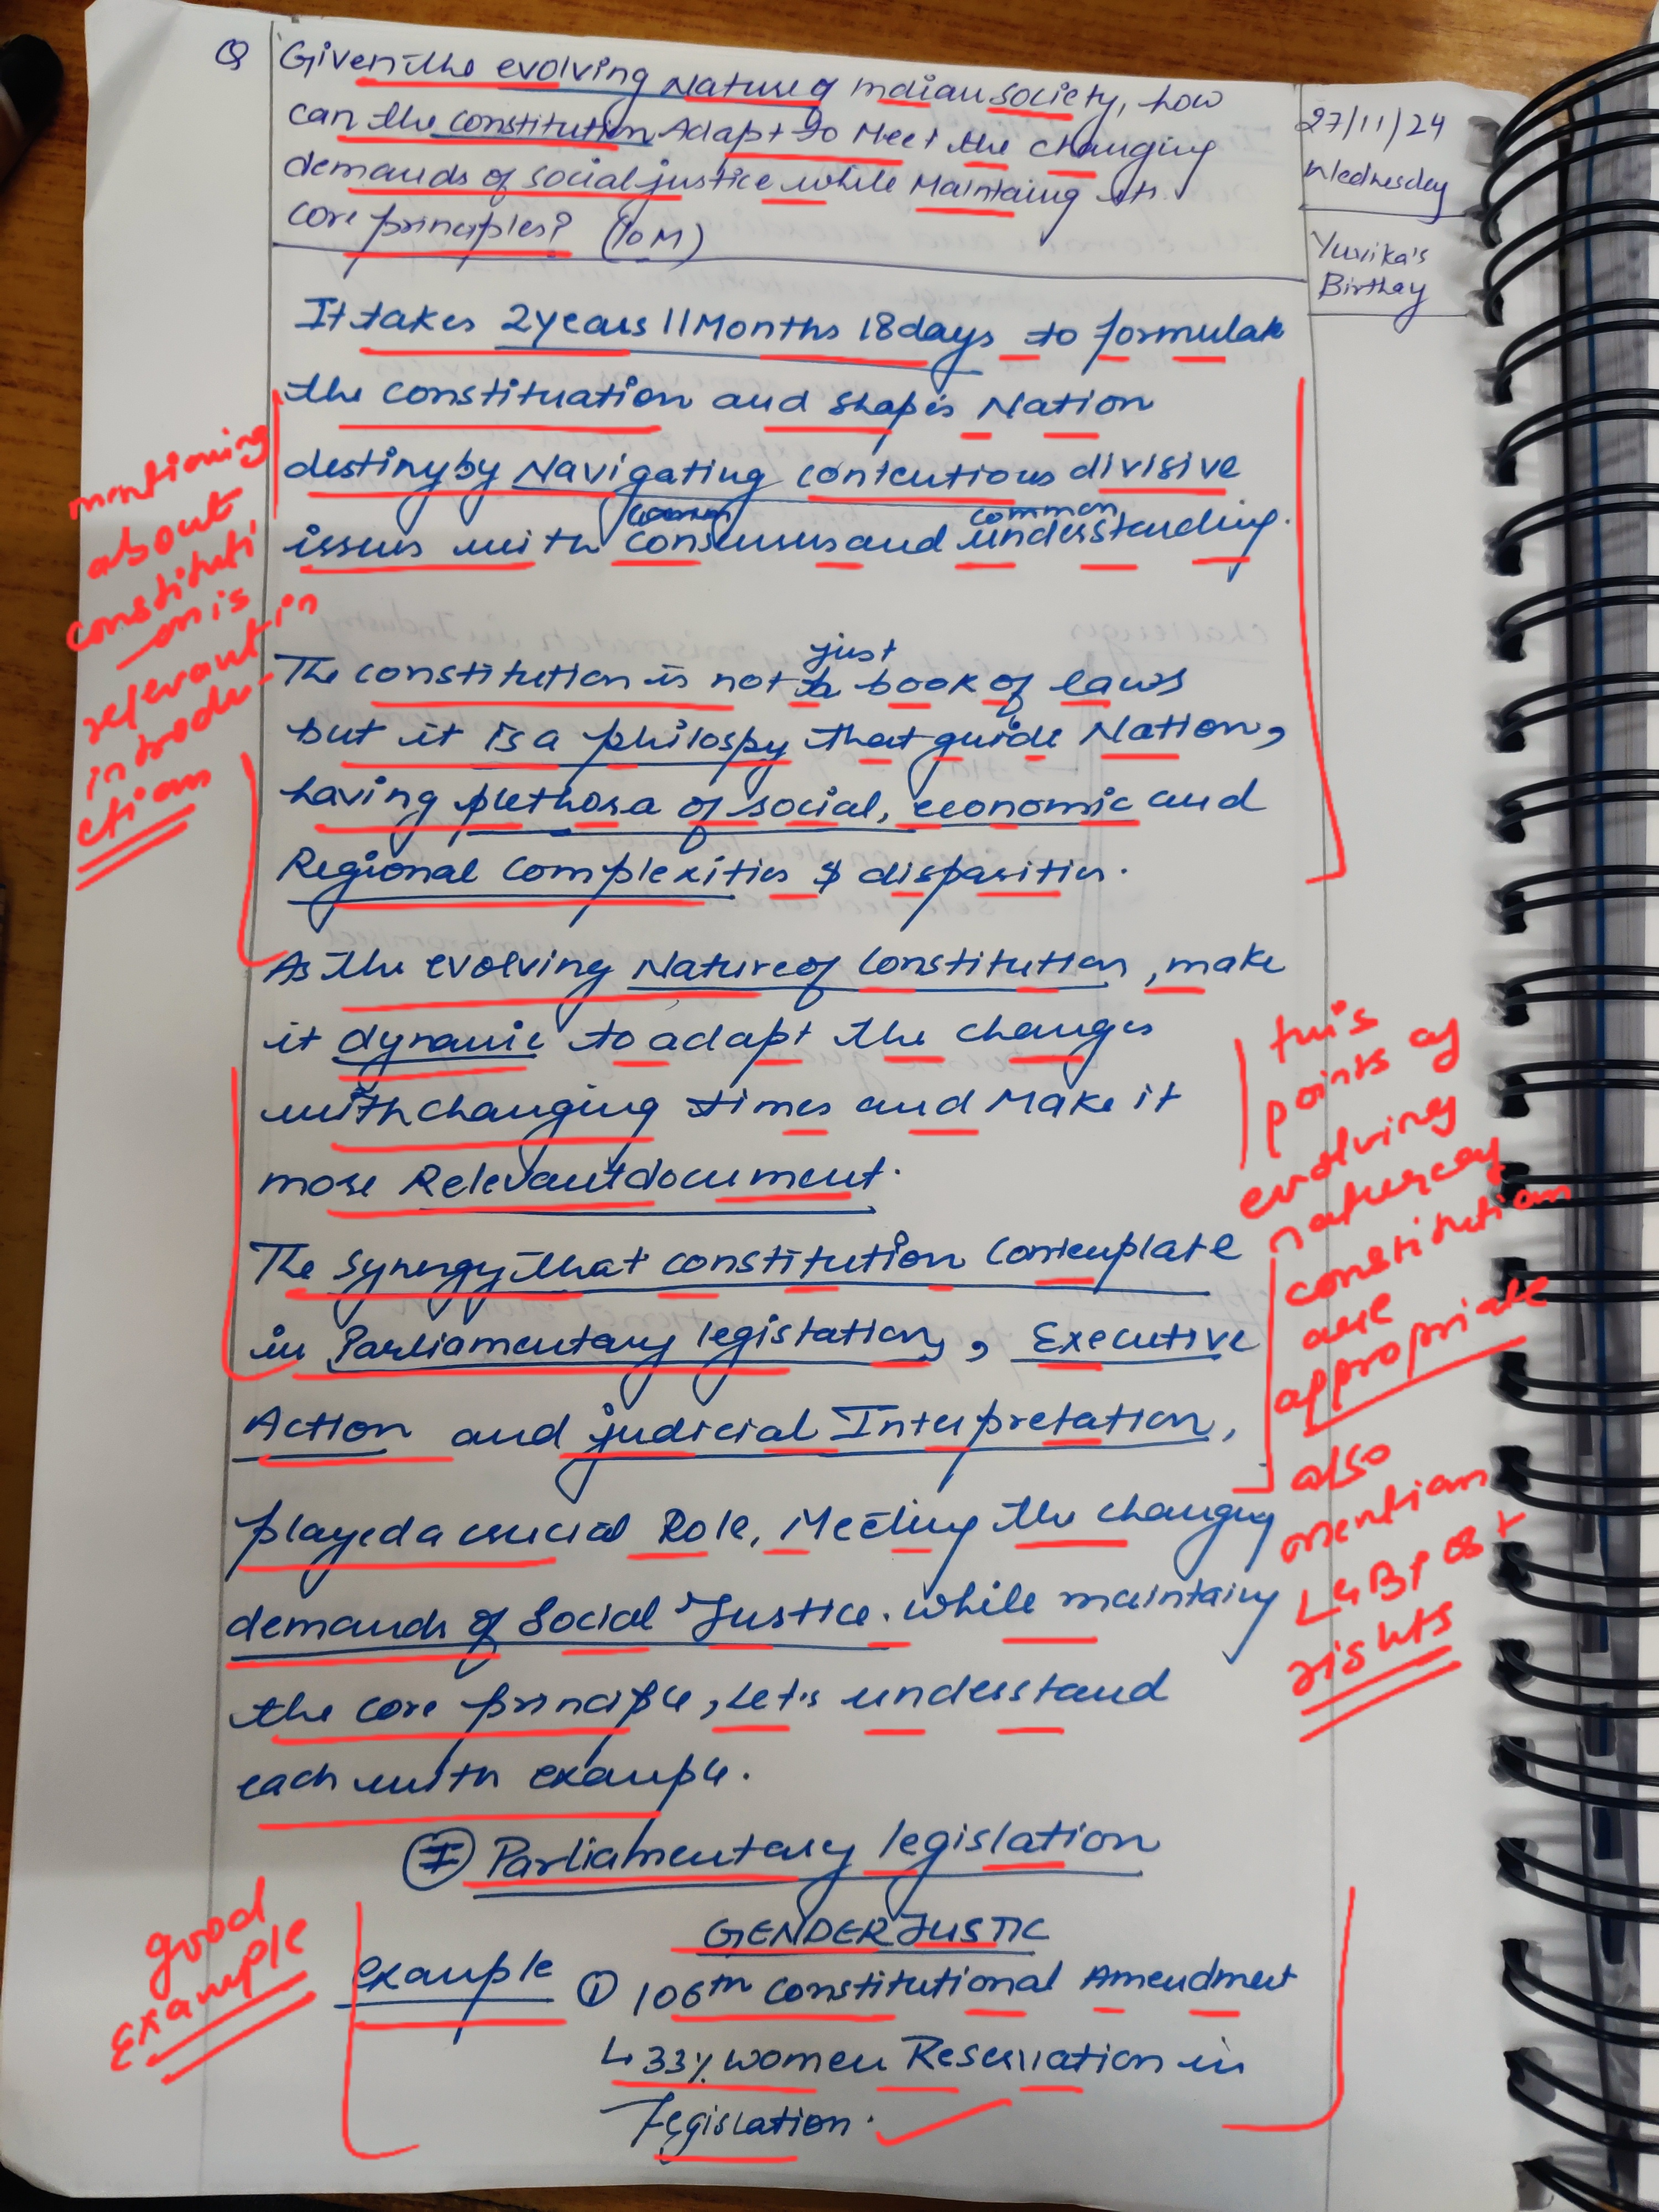 Q Given the evolving Nature of Indian society, how
can the constitution Adapt to Meet the changing
demands of social justice while Maintaing its
core principles? (10M)
27/11/24
Wednesday
Yuvika's
Birthay
It takes 2 years 11 Months 18 days to formulate
the constituation and shapes Nation
destiny by Navigating contentious divisive
issues with consensus and common understanding.
The constitution is not just book of laws
but it is a philospy that guide Nation,
having plethora of social, economic and
Regional Complexities & disparities.
As the evolving Nature of Constitution, make
it dynamic to adapt the changes
with changing times and Make it
more Relevant document.
The synergy that constitution Contemplate
in Parliamentary legistation, Executive
Action and judicial Interpretation,
played a crucial Role, Meeting the changing
demands of Social Justice. while maintaing
the core principle, Let's understand
each with example.
I Parliamentary legislation
GENDER JUSTIC
Example ① 106th Constitutional Amendment
↳ 33% women Reservation in
Legislation.
mentioning
about
constituti
-on is
relevant in
introdu-
ction
this
points of
evolving
nature of
constitution
are
appropriate
also
mention
LGBTQ+
rights
good
Example